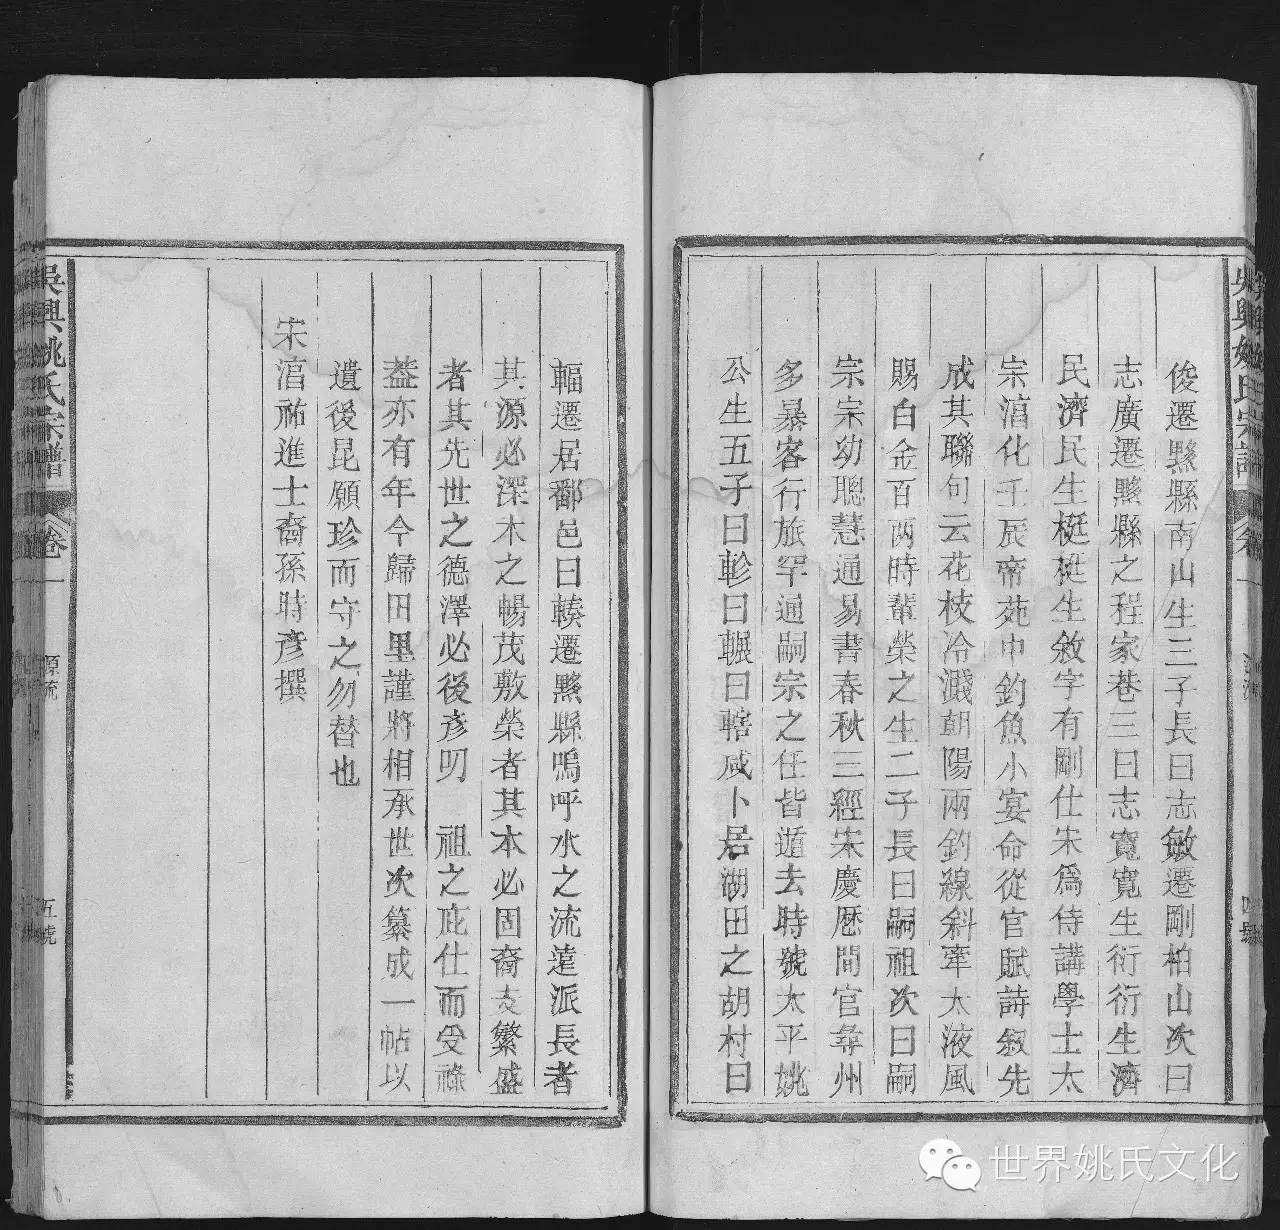 俊遷黟縣南山生三子長曰志敏遷剛柏山次曰
志廣遷黟縣之程家巷三曰志寬寬生衍衍生濟
民濟民生梃梃生敘字有剛仕宋為侍講學士太
宗淳化壬辰帝苑中釣魚小宴命從官賦詩叙先
成其聯句云花枝冷濺朝陽雨釣線斜牽太液風
賜白金百两時輩榮之生二子長曰嗣祖次曰嗣
宗宗幼聰慧通易書春秋三經宋慶厯間官彞州
多暴客行旅罕通嗣宗之任皆遁去時號太平姚
公生五子曰軫曰輾曰轄咸卜居湖田之胡村曰
輻遷居鄱邑曰轅遷黟縣嗚呼水之流遠派長者
其源必深木之暢茂敷榮者其本必固裔支繁盛
者其先世之德澤必後彥叨 祖之庇仕而受祿
葢亦有年今歸田里謹將相承世次纂成一帖以
遺後昆願珍而守之勿替也
宋淳祐進士裔孫時彥撰
吳興姚氏宗譜 卷一 源流 五號
世界姚氏文化